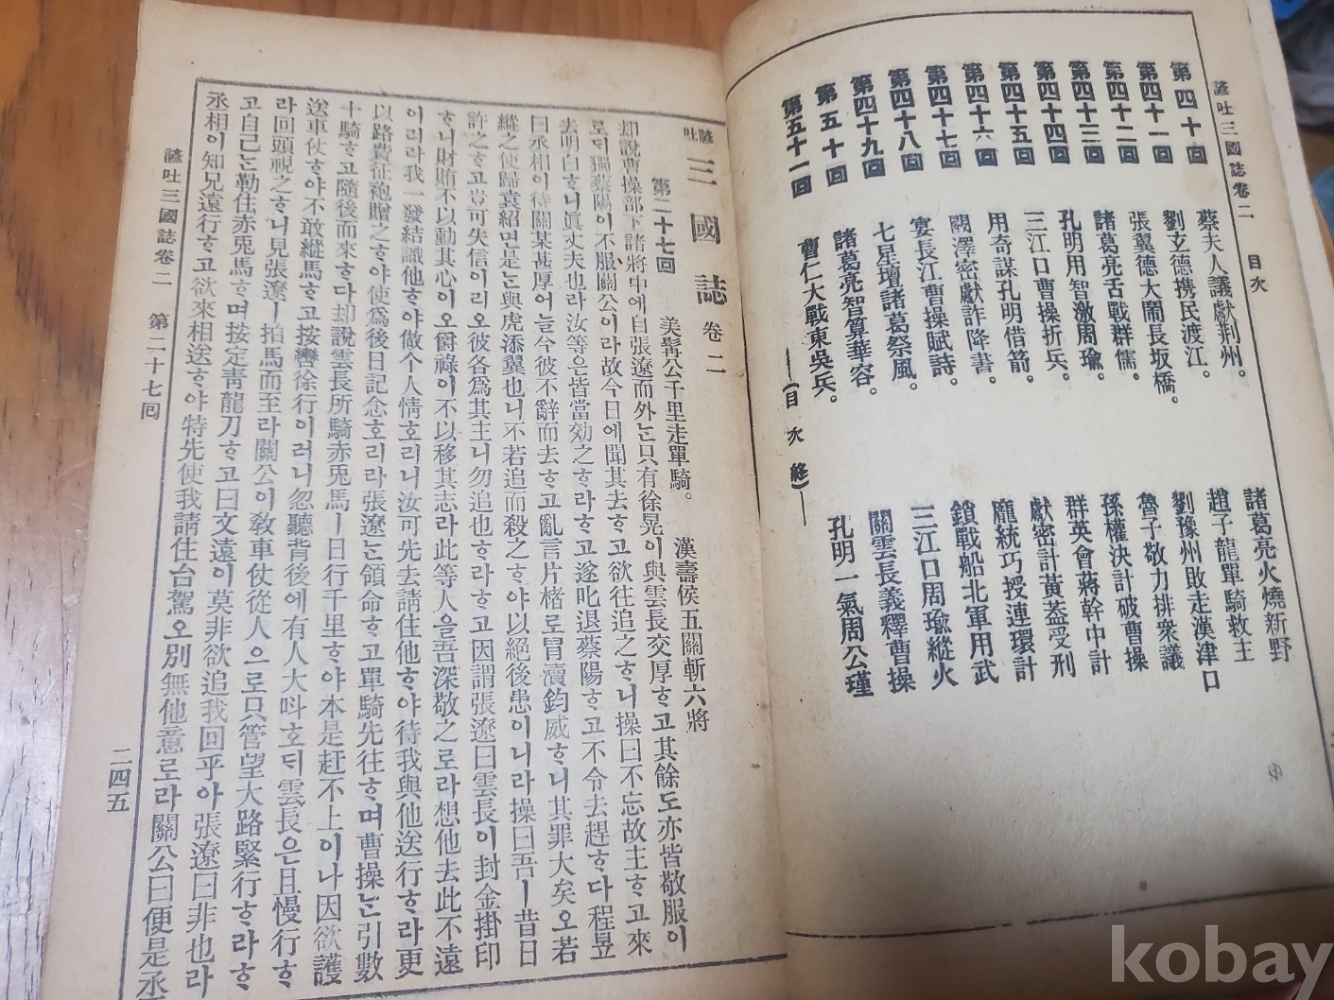 諺吐三國誌卷二 目次
第四十回 蔡夫人議獻荆州。 諸葛亮火燒新野
第四十一回 劉玄德携民渡江。 趙子龍單騎救主
第四十二回 張翼德大鬧長坂橋。 劉豫州敗走漢津口
第四十三回 諸葛亮舌戰群儒。 魯子敬力排衆議
第四十四回 孔明用智激周瑜。 孫權決計破曹操
第四十五回 三江口曹操折兵。 群英會蔣幹中計
第四十六回 用奇謀孔明借箭。 獻密計黃蓋受刑
第四十七回 闞澤密獻詐降書。 龐統巧授連環計
第四十八回 宴長江曹操賦詩。 鎖戰船北軍用武
第四十九回 七星壇諸葛祭風。 三江口周瑜縱火
第五十回 諸葛亮智算華容。 關雲長義釋曹操
第五十一回 曹仁大戰東吳兵。 孔明一氣周公瑾
(目次終)
諺吐 三國誌 卷二
第二十七回 美髯公千里走單騎。 漢壽侯五關斬六將
却說曹操部下諸將中에自張遼而外ᄂᆞᆫ只有徐晃이與雲長交厚ᄒᆞ고其餘도亦皆敬服이
로ᄃᆡ獨蔡陽이不服關公이라故今日에聞其去ᄒᆞ고欲往追之ᄒᆞ니操曰不忘故主ᄒᆞ고來
去明白ᄒᆞ니眞丈夫也라汝等은皆當効之ᄒᆞ라ᄒᆞ고遂叱退蔡陽ᄒᆞ고不令去趕ᄒᆞ다程昱
曰丞相이待關某甚厚어늘今彼不辭而去ᄒᆞ고亂言片楮로冒瀆鈞威ᄒᆞ니其罪大矣오若
縱之使歸袁紹면是ᄂᆞᆫ與虎添翼也니不若追而殺之ᄒᆞ야以絕後患이니라操曰吾ㅣ昔日
許之ᄒᆞ고豈可失信이리오彼各爲其主니勿追也ᄒᆞ라ᄒᆞ고因謂張遼曰雲長이封金掛印
ᄒᆞ니財賄不以動其心이오爵祿이不以移其志라此等人을吾深敬之로라想他去此不遠
이리라我一發結識他ᄒᆞ야做个人情호리니汝可先去請住他ᄒᆞ야待我與他送行ᄒᆞ라更
以路費征袍贈之ᄒᆞ야使爲後日記念호리라張遼ᄂᆞᆫ領命ᄒᆞ고單騎先往ᄒᆞ며曹操ᄂᆞᆫ引數
十騎ᄒᆞ고隨後而來ᄒᆞ다却說雲長所騎赤兎馬ㅣ日行千里ᄒᆞ야本是赶不上이나因欲護
送車仗ᄒᆞ야不敢縱馬ᄒᆞ고按轡徐行이러니忽聽背後에有人大呌호ᄃᆡ雲長은且慢行ᄒᆞ
라回頭視之ᄒᆞ니見張遼ㅣ拍馬而至라關公이敎車仗從人으로只管望大路緊行ᄒᆞ라ᄒᆞ
고自己ᄂᆞᆫ勒住赤兎馬ᄒᆞ며按定靑龍刀ᄒᆞ고曰文遠이莫非欲追我回乎아張遼曰非也라
丞相이知兄遠行ᄒᆞ고欲來相送ᄒᆞ야特先使我請住台駕오別無他意로라關公曰便是丞
諺吐三國誌卷二 第二十七回 二四五
kobay